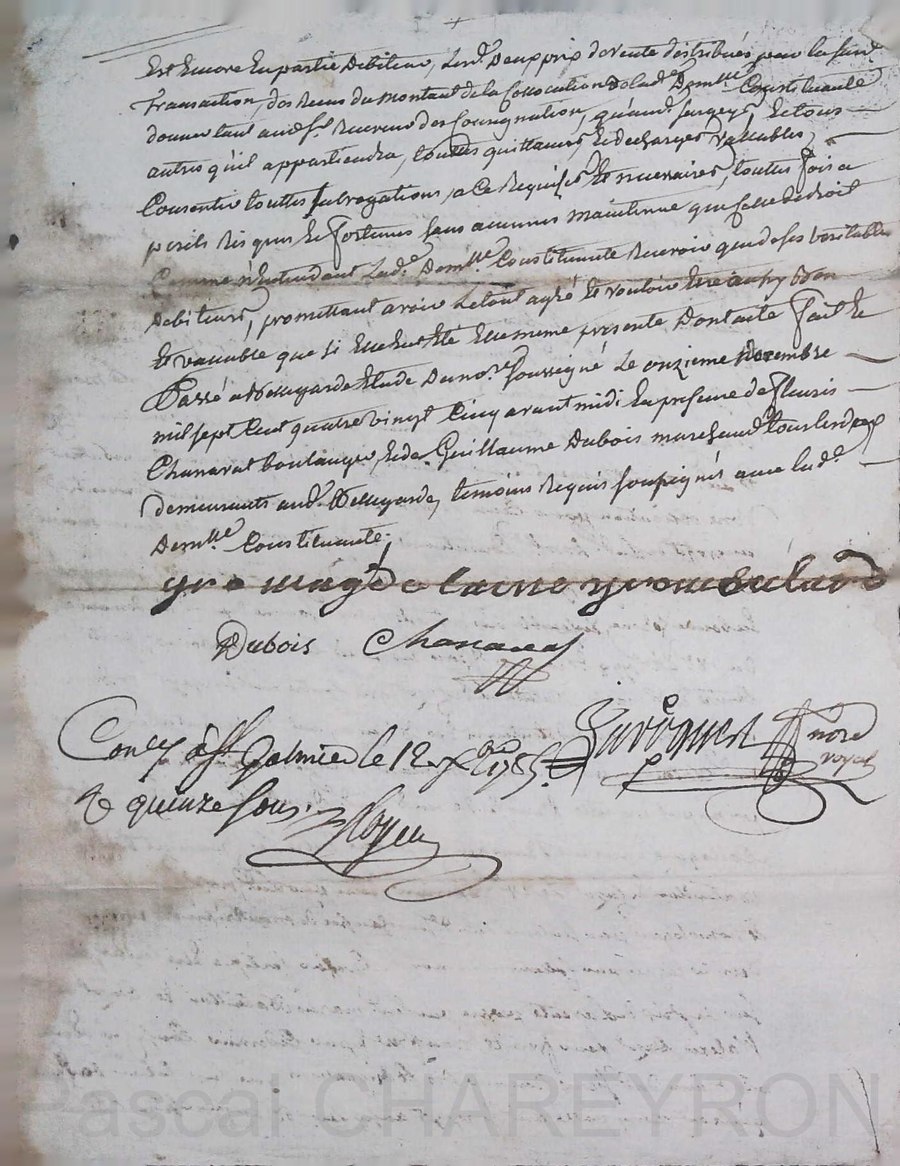 Est Encore En partie Debiteur, Led. Deux prix de vente distribués par la Susd.
Transaction, des Reçus du montant de la Collocation de lad.e Dem.lle Constituante
donner tant aud. Sr. Receveur des Consignation, qu'aud. et tous
autres qu'il appartiendra, touttes quittances, et decharges valables,
Consentir touttes subrogations, a ce Requises Et necessaires, toutes fois a
perils Risques Et fortunes sans aucunes maintenue que celle de droit
Comme n'Entendant Lad.e Dem.lle Constituante Recevoir que de ses veritables
Debiteurs, promettant avoir Letout agréé Et vouloir Etre aussy bon
Et vallable que si Elle Eut Eté Elle meme presente Dont acte fait Et
Passé a Bellegarde Etude Du no.re soussigné Le onzieme
mil sept Cent quatre vingt Cinq avant midi En presence de fleuris
Chanavat boulanger, et de Guillaume Dubois marechand tous les deux
demeurants aud. Bellegarde, temoins Requis soussignés avec lad.e
Dem.lle Constituante.
Dubois Chanavat
no.re
royal
Con.lé à St. Galmier le 12 1785.
R quinze sous.
Pascal CHAREYRON